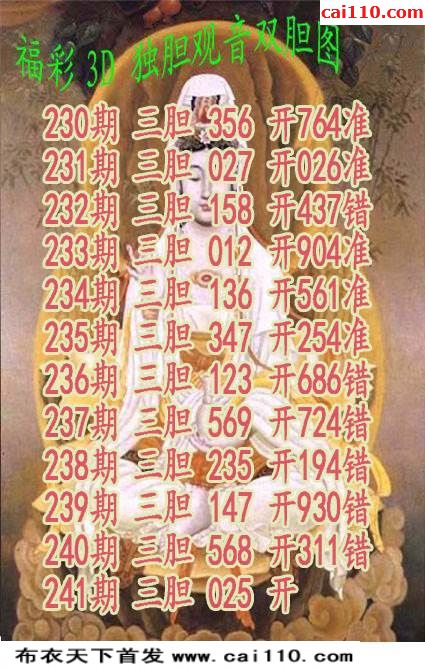 cai110.com
福彩 3D 独胆观音双胆图
230期 三胆 356 开764准
231期 三胆 027 开026准
232期 三胆 158 开437错
233期 三胆 012 开904准
234期 三胆 136 开561准
235期 三胆 347 开254准
236期 三胆 123 开686错
237期 三胆 569 开724错
238期 三胆 235 开194错
239期 三胆 147 开930错
240期 三胆 568 开311错
241期 三胆 025 开
布衣天下首发 www.cai110.com